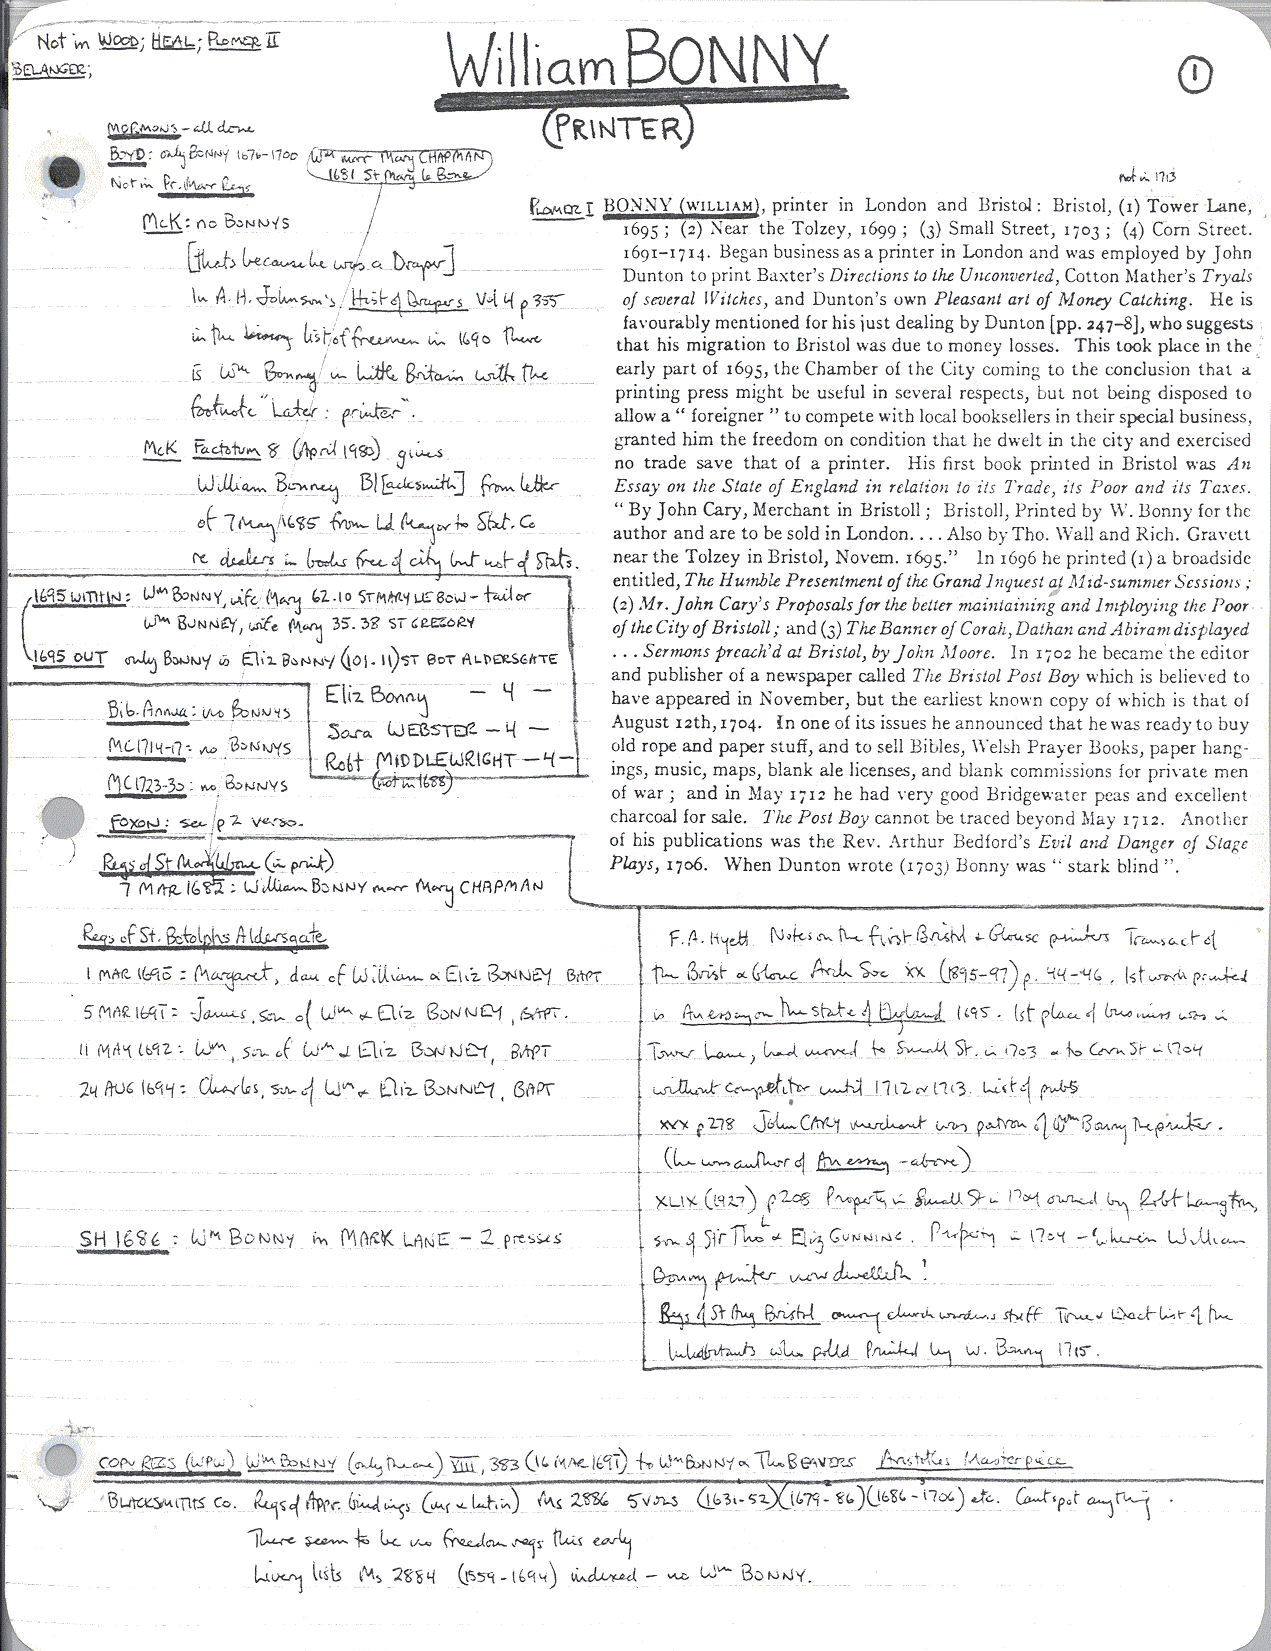 Not in WOOD; HEAL; PLOMER II
BELANGER;
William BONNY
(PRINTER)
1
MORMONS - all done
BOYD: only BONNY 1676-1700
Wm marr Mary CHAPMAN
1681 St Mary le Bone
Not in Pr. Marr Regs
McK: no BONNYS
[thats because he was a Draper]
In A. H. Johnson's Hist of Drapers Vol 4 p 355
in the list of freemen in 1690 there
is Wm Bonney in Little Britain with the
footnote "Later: printer".
McK Factotum 8 (April 1980) gives
William Bonney Bl[acksmith] from letter
of 7 May 1685 from Ld Mayor to Stat. Co
re dealers in books free of city but not of Stats.
1695 WITHIN: Wm BONNY, wife Mary 62.10 ST MARY LE BOW - tailor
Wm BUNNEY, wife Mary 35.38 ST GREGORY
1695 OUT only BONNY is Eliz BONNY (101.11) ST BOT ALDERSGATE
Eliz Bonny - 4 -
Sara WEBSTER - 4 -
Robt MIDDLEWRIGHT - 4 -
(not in 1688)
Bib. Annua: no BONNYS
MC1714-17: no BONNYS
MC1723-30: no BONNYS
FOXON: see p 2 verso.
Regs of St Marylebone (in print)
7 MAR 1682: William BONNY marr Mary CHAPMAN
not in 1713
PLOMER I BONNY (WILLIAM), printer in London and Bristol: Bristol, (1) Tower Lane,
1695; (2) Near the Tolzey, 1699; (3) Small Street, 1703; (4) Corn Street.
1691-1714. Began business as a printer in London and was employed by John
Dunton to print Baxter's Directions to the Unconverted, Cotton Mather's Tryals
of several Witches, and Dunton's own Pleasant art of Money Catching. He is
favourably mentioned for his just dealing by Dunton [pp. 247-8], who suggests
that his migration to Bristol was due to money losses. This took place in the
early part of 1695, the Chamber of the City coming to the conclusion that a
printing press might be useful in several respects, but not being disposed to
allow a "foreigner" to compete with local booksellers in their special business,
granted him the freedom on condition that he dwelt in the city and exercised
no trade save that of a printer. His first book printed in Bristol was An
Essay on the State of England in relation to its Trade, its Poor and its Taxes.
"By John Cary, Merchant in Bristoll; Bristoll, Printed by W. Bonny for the
author and are to be sold in London.... Also by Tho. Wall and Rich. Gravett
near the Tolzey in Bristol, Novem. 1695." In 1696 he printed (1) a broadside
entitled, The Humble Presentment of the Grand Inquest at Mid-summer Sessions;
(2) Mr. John Cary's Proposals for the better maintaining and Imploying the Poor
of the City of Bristoll; and (3) The Banner of Corah, Dathan and Abiram displayed
... Sermons preach'd at Bristol, by John Moore. In 1702 he became the editor
and publisher of a newspaper called The Bristol Post Boy which is believed to
have appeared in November, but the earliest known copy of which is that of
August 12th, 1704. In one of its issues he announced that he was ready to buy
old rope and paper stuff, and to sell Bibles, Welsh Prayer Books, paper hang-
ings, music, maps, blank ale licenses, and blank commissions for private men
of war; and in May 1712 he had very good Bridgewater peas and excellent
charcoal for sale. The Post Boy cannot be traced beyond May 1712. Another
of his publications was the Rev. Arthur Bedford's Evil and Danger of Stage
Plays, 1706. When Dunton wrote (1703) Bonny was "stark blind".
Regs of St. Botolphs Aldersgate
: Margaret, dau of William & Eliz BONNEY BAPT
5 MAR 1691: James, son of Wm & Eliz BONNEY, BAPT.
11 MAY 1692: Wm, son of Wm & Eliz BONNEY, BAPT
24 AUG 1694: Charles, son of Wm & Eliz BONNEY, BAPT
SH 1686: Wm BONNY in MARK LANE - 2 presses
F. A. Hyett Notes on the first Bristol & Glouc printers Transact of
the Brist & Glouc Arch Soc XX (1895-97) p. 44-46. 1st work printed
is An essay on the state of England 1695. 1st place of business was in
Tower Lane, had moved to Small St. in 1703 & to Corn St in 1704
without competitor until 1712 or 1713. List of pubs
XXX p 278 John CARY merchant was patron of Wm Bonny the printer.
(he was author of An essay - above)
XLIX (1927) p 208 Property in Small St in 1704 owned by Robt Langton,
son of Sir Tho L & Eliz GUNNING. Property in 1704 - 'wherein William
Bonny printer now dwelleth'!
Regs of St Aug Bristol among churchwardens stuff True & Exact list of the
Inhabitants who polld Printed by W. Bonny 1715.
COPY REGS (WPW) Wm BONNY (only the one) VIII, 383 (16 MAR 1691) to Wm BONNY & Tho BEAVERS Aristotles Masterpiece
BLACKSMITHS Co. Regs of Appr. bindings (ms & latin) Ms 2886 5 vols (1631-52)(1679-86)(1686-1706) etc. Cant spot anything.
There seem to be no freedom regs this early
Livery lists Ms 2884 (1559-1694) indexed - no Wm BONNY.